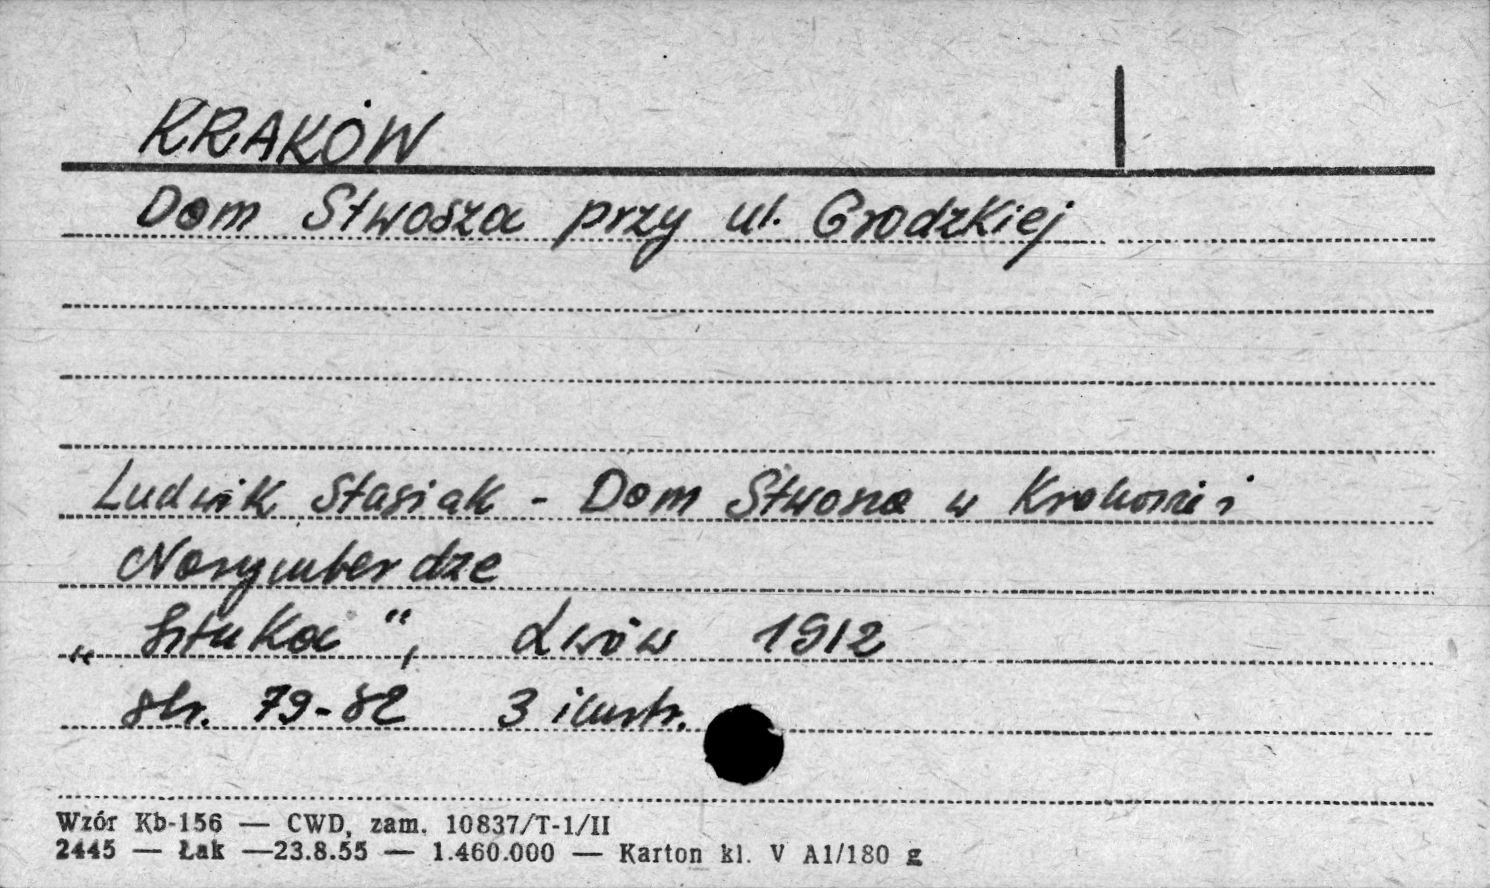 KRAKÓW
Dom Stwosza przy ul. Grodzkiej
Ludwik Stasiak - Dom Stwosza w Krakowie i
Norymberdze
„Sztuka", Lwów 1912
str. 79-82 3 ilustr.
Wzór Kb-156 — CWD, zam. 10837/T-1/II
2445 — Łak —23.8.55 — 1.460.000 — Karton kl. V A1/180 g